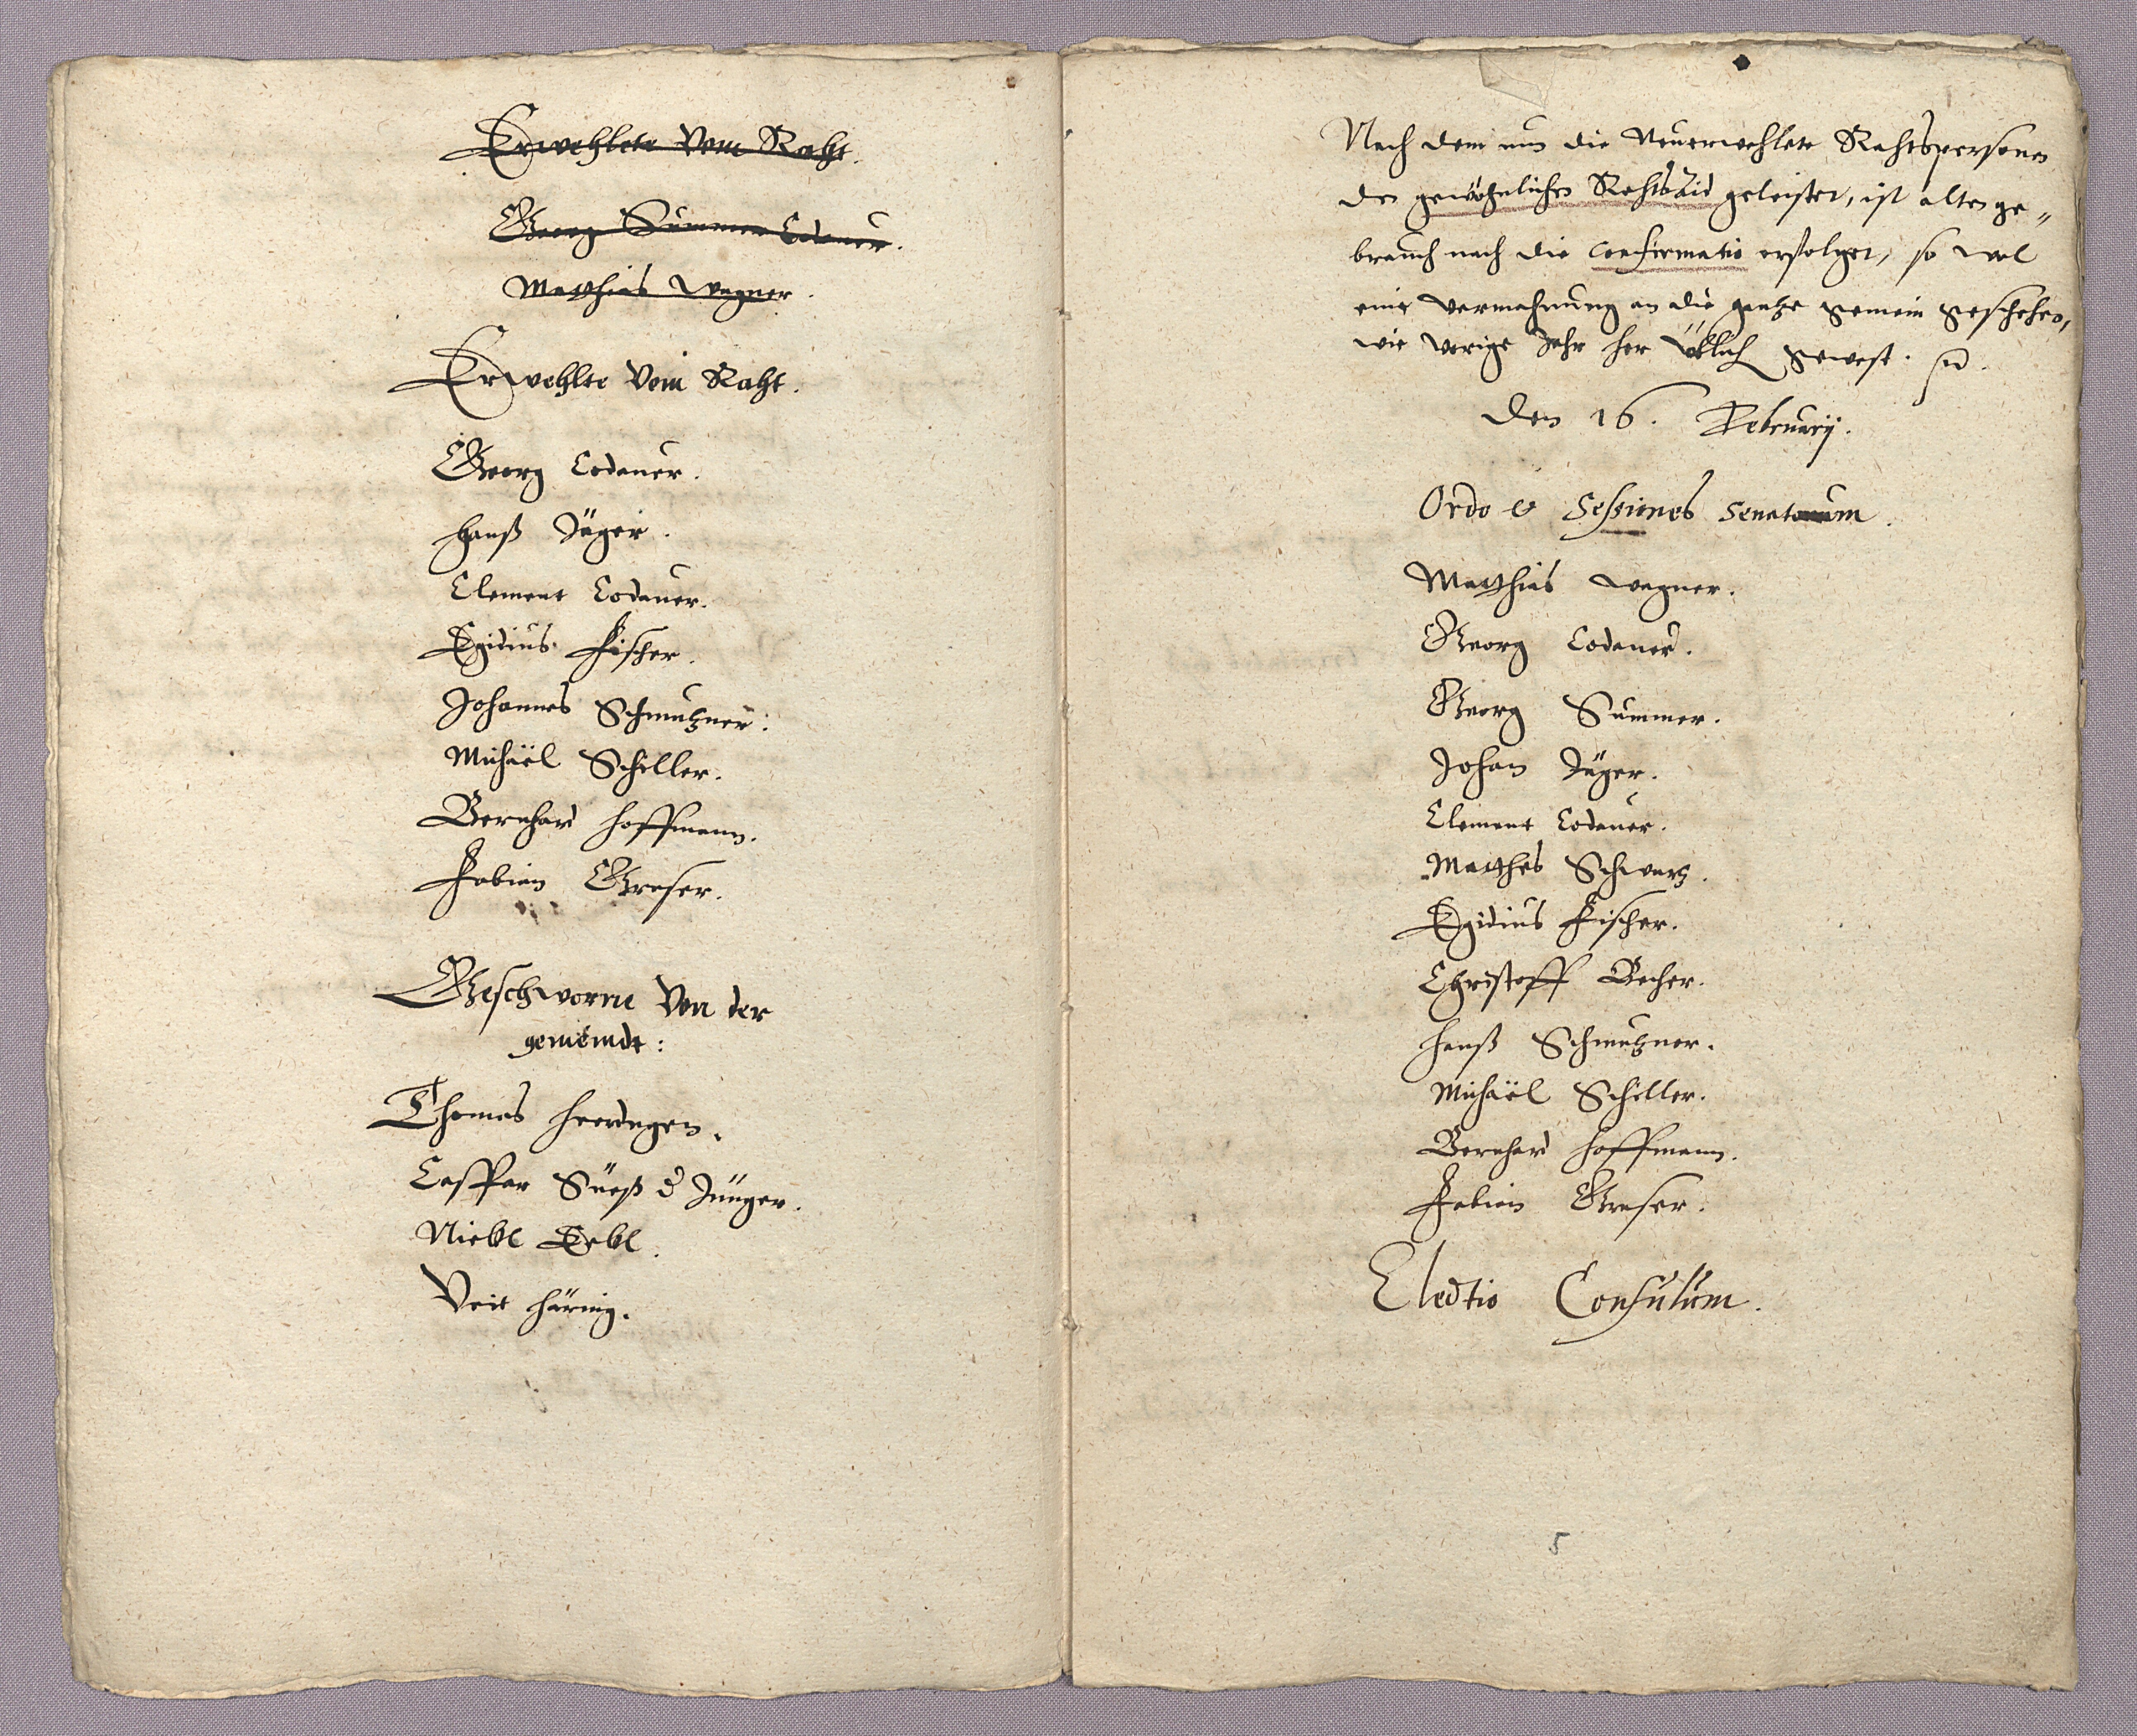 Erwehlete Vom Raht.
Georg Summer Codauer.
Matthias Wagner.
Erwehlte Vom Raht.
Georg Codauer.
Hanß Jäger.
Clement Codauer.
Egidius Fischer.
Johannes Schmutzner.
Michäel Schiller.
Bernhard Hoffmann.
Fabian Graser.
Geschworne Von der
gemeindt:
Thomas Heerdegen.
Casspar Süeß d Jünger.
Nickl Gebl.
Veit Häring.
Nach dem nun die Neuerwehlete Rahtspersonen
den gewöhnlichen Rahtsaid geleistet, ist alten ge„
brauch nach die Confirmatio erfolget, so wol
eine vermahnung an die gantze gemein geschehen,
wie vorige Jahr her üblich gewest.
Den 16. February.
Ordo & Sessiones Senatorum.
Matthias Wagner.
Georg Codauer.
Georg Summer.
Johan Jäger.
Clement Codauer.
Matthes Schwartz.
Egidius Fischer.
Christoff Becher.
Hanß Schmutzner.
Michäel Schiller.
Bernhard Hoffmann.
Fabian Graser.
Electio Consulum.
5